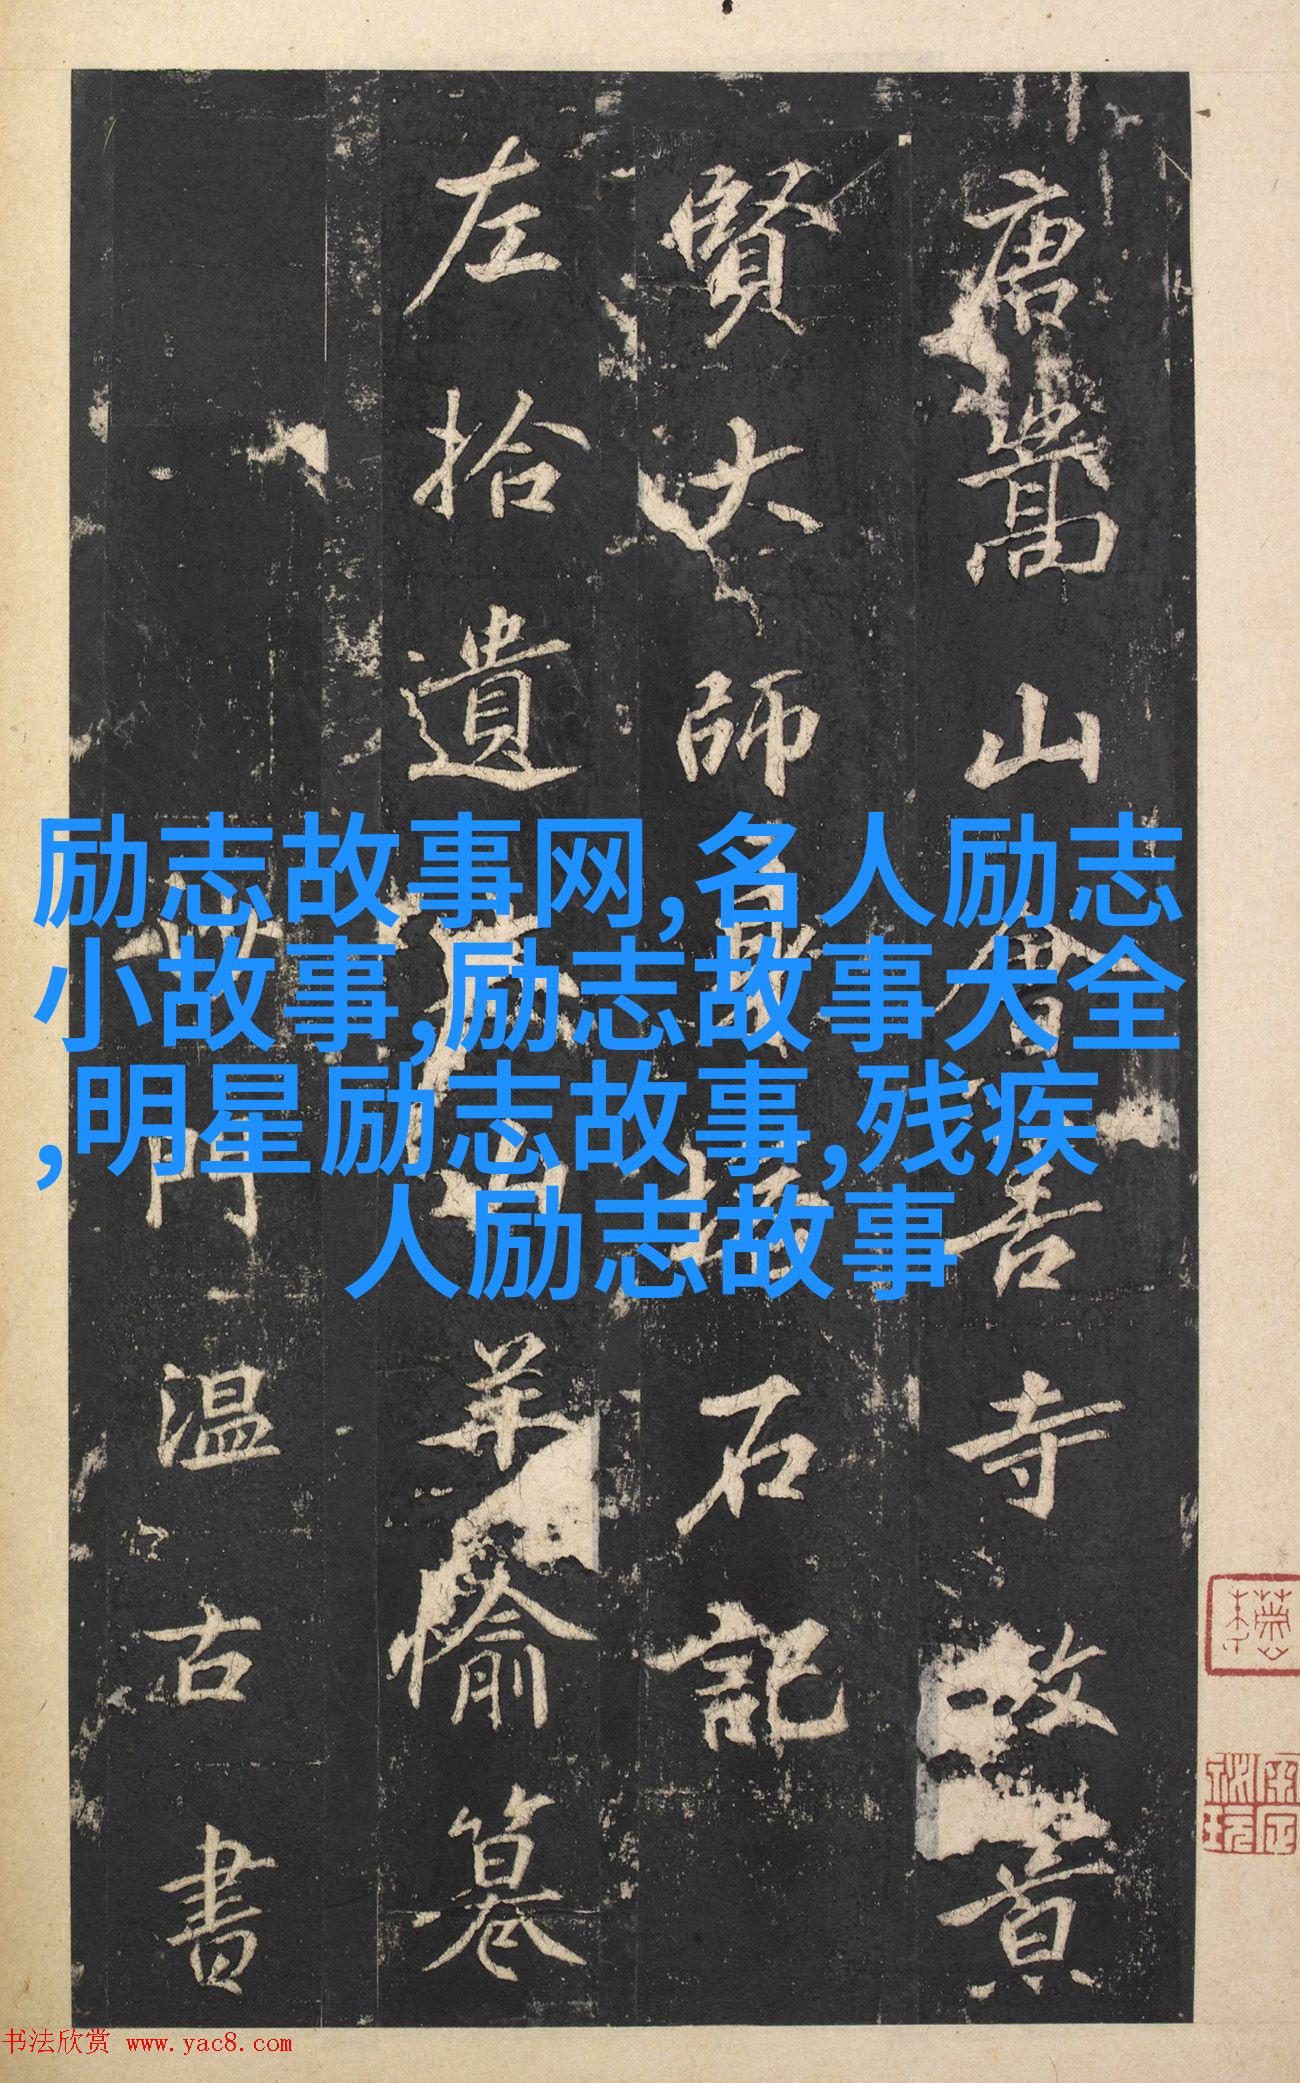 唐嵩山會善寺故景
賢大師身塔石記
左拾遺羊愉纂
沙門溫古書
励志故事网,名人励志
小故事,励志故事大全
,明星励志故事,残疾
人励志故事
书法欣赏 www.yac8.com